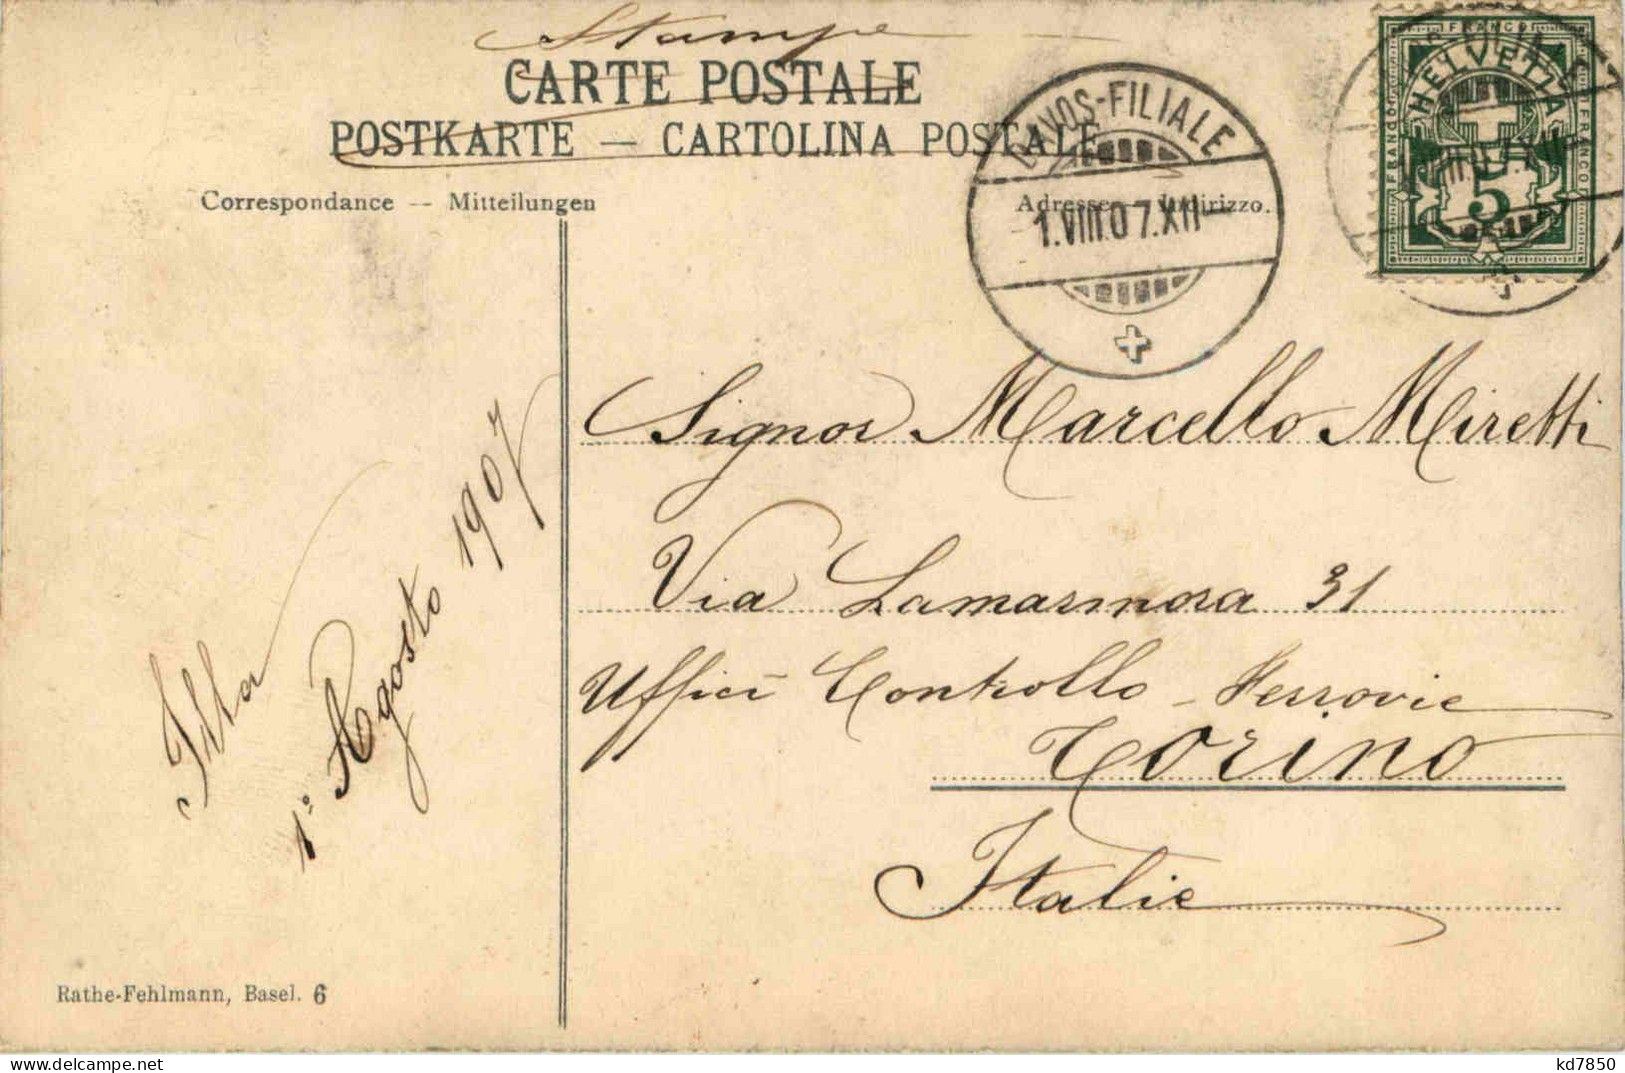 Stampe
CARTE POSTALE
POSTKARTE — CARTOLINA POSTALE
Correspondance -- Mitteilungen
Adresse — Indirizzo.
DAVOS-FILIALE
1.VIII.07.XII—
FRANCO
HELVETIA
FRANCO
FRANCO
5
Signor Marcello Miretti
Via Lamarmora 31
Uffici Controllo - Ferrovie
Torino
Italie
1º Agosto 1907
Rathe-Fehlmann, Basel. 6
delcampe.net
kd7850